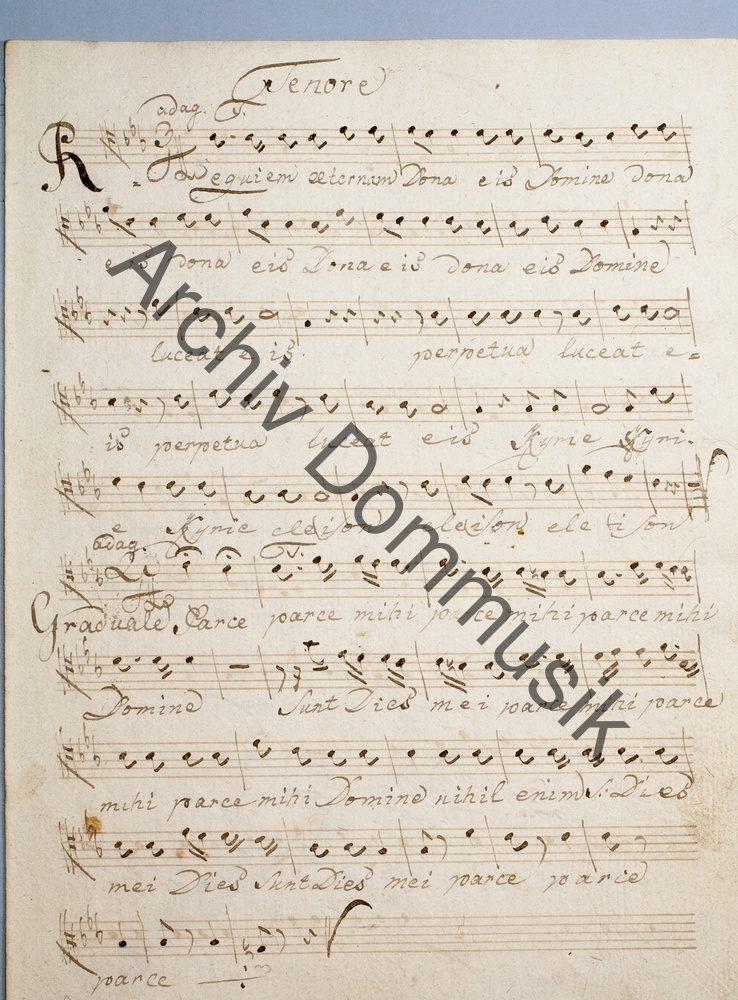 Tenore
adag. T.
Requiem æternam Dona eis Domine dona
eis dona eis Dona eis dona eis Domine
luceat eis perpetua luceat e=
is perpetua luceat eis Kyrie Kyri-
e Kyrie eleison eleison eleison
adag. T.
Graduale Parce parce mihi parce mihi parce mihi
Domine Sunt Dies mei parce mihi parce
mihi parce mihi Domine nihil enim S: Dies
mei Dies Sunt Dies mei parce parce
parce
Archiv Dommusik